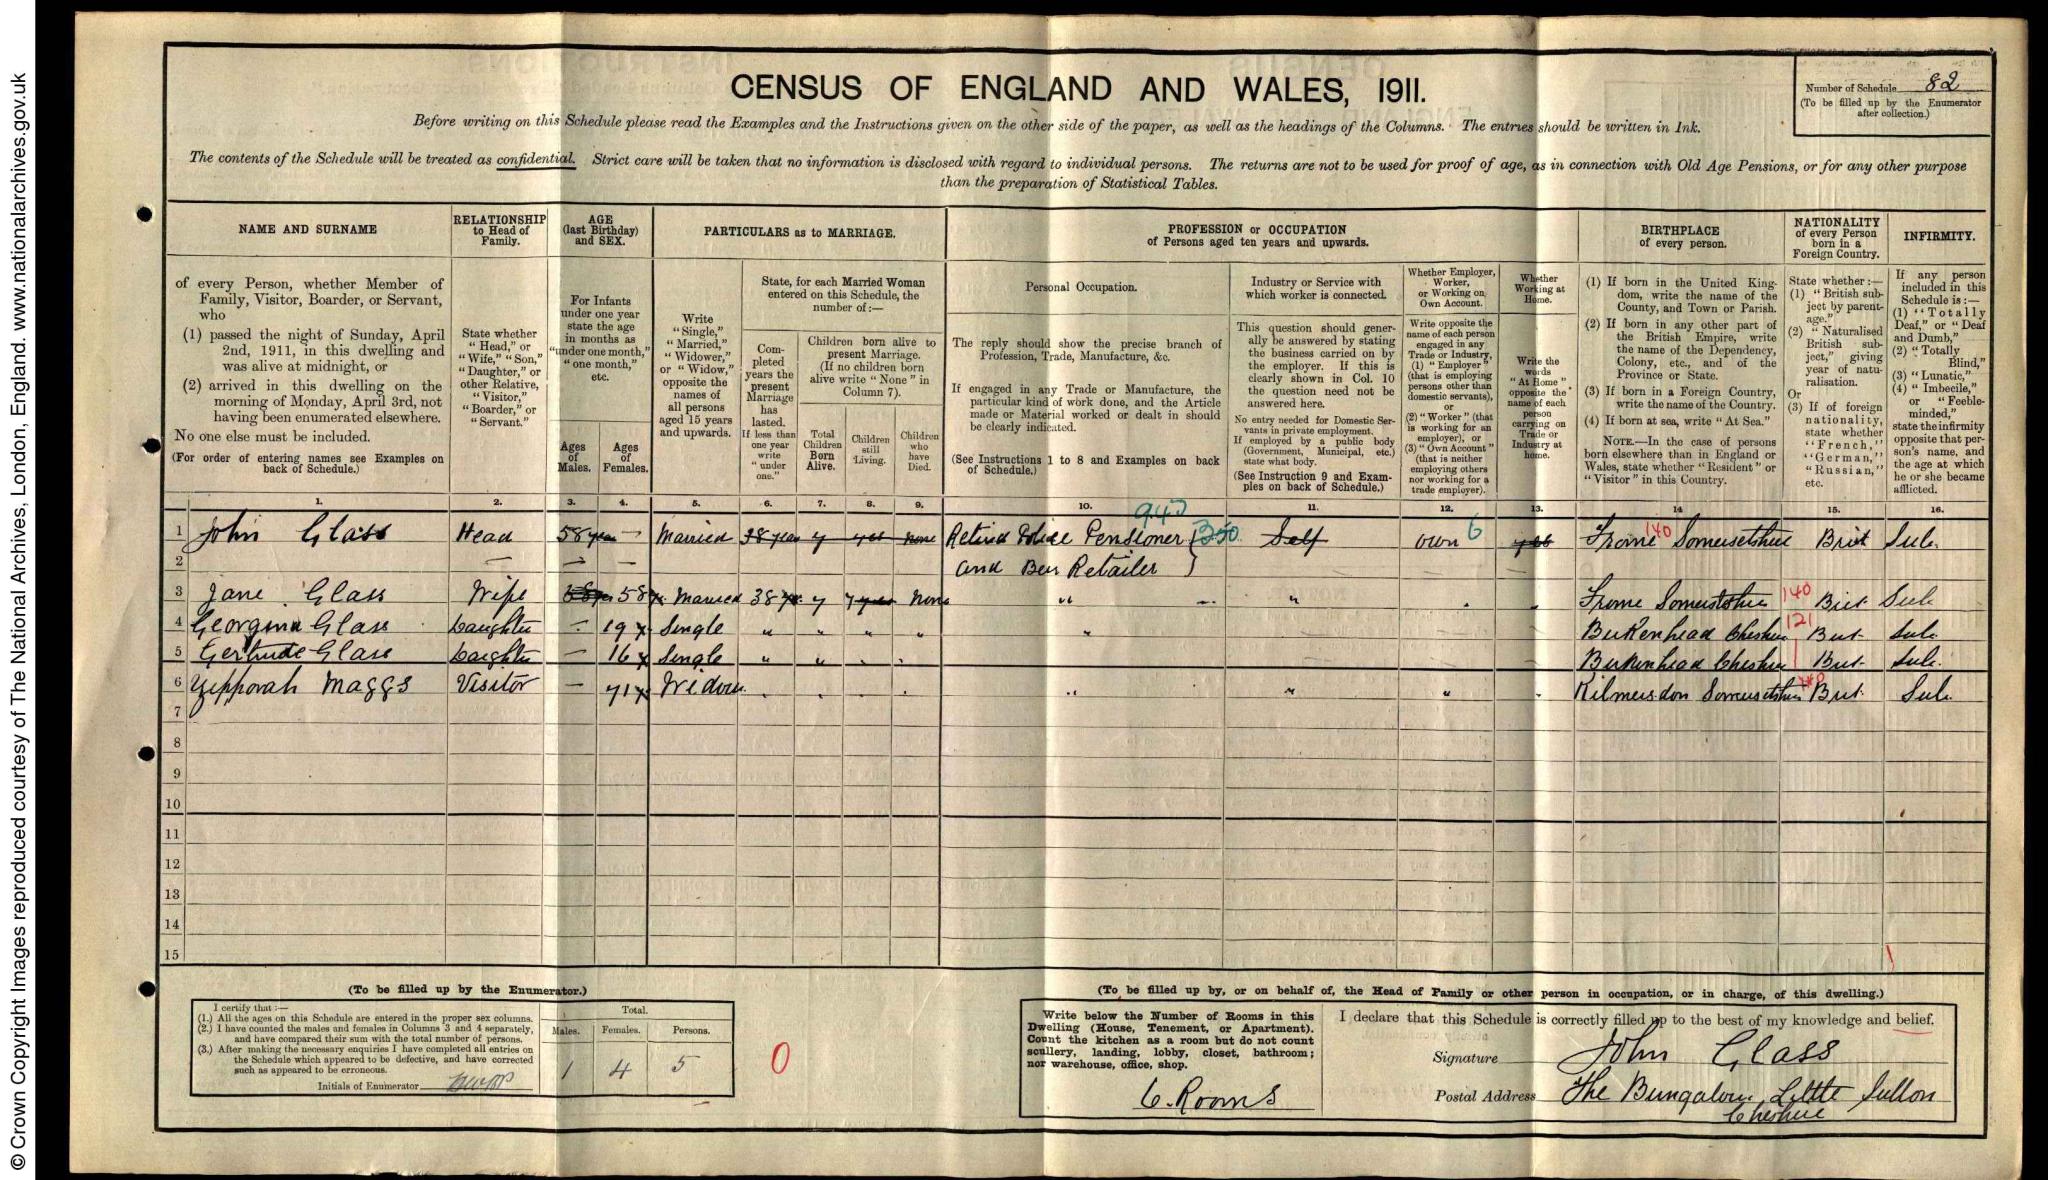 © Crown Copyright Images reproduced courtesy of The National Archives, London, England. www.nationalarchives.gov.uk
CENSUS OF ENGLAND AND WALES, 1911.
Number of Schedule 82
(To be filled up by the Enumerator
after collection.)
Before writing on this Schedule please read the Examples and the Instructions given on the other side of the paper, as well as the headings of the Columns. The entries should be written in Ink.
The contents of the Schedule will be treated as confidential. Strict care will be taken that no information is disclosed with regard to individual persons. The returns are not to be used for proof of age, as in connection with Old Age Pensions, or for any other purpose
than the preparation of Statistical Tables.
NAME AND SURNAME
of every Person, whether Member of
Family, Visitor, Boarder, or Servant,
who
(1) passed the night of Sunday, April
2nd, 1911, in this dwelling and
was alive at midnight, or
(2) arrived in this dwelling on the
morning of Monday, April 3rd, not
having been enumerated elsewhere.
No one else must be included.
(For order of entering names see Examples on
back of Schedule.)
RELATIONSHIP
to Head of
Family.
State whether
"Head," or
"Wife," "Son,"
"Daughter," or
other Relative,
"Visitor,"
"Boarder," or
"Servant."
AGE
(last Birthday)
and SEX.
For Infants
under one year
state the age
in months as
"under one month,"
"one month,"
etc.
Ages
of
Males.
Ages
of
Females.
PARTICULARS as to MARRIAGE.
Write
"Single,"
"Married,"
"Widower,"
or "Widow,"
opposite the
names of
all persons
aged 15 years
and upwards.
State, for each Married Woman
entered on this Schedule, the
number of:—
Com-
pleted
years the
present
Marriage
has
lasted.
If less than
one year
write
"under
one."
Children born alive to
present Marriage.
(If no children born
alive write "None" in
Column 7).
Total
Children
Born
Alive.
Children
still
Living.
Children
who
have
Died.
PROFESSION or OCCUPATION
of Persons aged ten years and upwards.
Personal Occupation.
The reply should show the precise branch of
Profession, Trade, Manufacture, &c.
If engaged in any Trade or Manufacture, the
particular kind of work done, and the Article
made or Material worked or dealt in should
be clearly indicated.
(See Instructions 1 to 8 and Examples on back
of Schedule.)
Industry or Service with
which worker is connected.
This question should gener-
ally be answered by stating
the business carried on by
the employer. If this is
clearly shown in Col. 10
the question need not be
answered here.
No entry needed for Domestic Ser-
vants in private employment.
If employed by a public body
(Government, Municipal, etc.)
state what body.
(See Instruction 9 and Exam-
ples on back of Schedule.)
Whether Employer,
Worker,
or Working on
Own Account.
Write opposite the
name of each person
engaged in any
Trade or Industry,
(1) "Employer"
(that is employing
persons other than
domestic servants),
or
(2) "Worker" (that
is working for an
employer), or
(3) "Own Account"
(that is neither
employing others
nor working for a
trade employer).
Whether
Working at
Home.
Write the
words
"At Home"
opposite the
name of each
person
carrying on
Trade or
Industry at
home.
BIRTHPLACE
of every person.
(1) If born in the United King-
dom, write the name of the
County, and Town or Parish.
(2) If born in any other part of
the British Empire, write
the name of the Dependency,
Colony, etc., and of the
Province or State.
(3) If born in a Foreign Country,
write the name of the Country.
(4) If born at sea, write "At Sea."
NOTE.—In the case of persons
born elsewhere than in England or
Wales, state whether "Resident" or
"Visitor" in this Country.
NATIONALITY
of every Person
born in a
Foreign Country.
State whether:—
(1) "British sub-
ject by parent-
age."
(2) "Naturalised
British sub-
ject," giving
year of natu-
ralisation.
Or
(3) If of foreign
nationality,
state whether
"French,"
"German,"
"Russian,"
etc.
INFIRMITY.
If any person
included in this
Schedule is:—
(1) "Totally
Deaf," or "Deaf
and Dumb,"
(2) "Totally
Blind,"
(3) "Lunatic,"
(4) "Imbecile,"
or "Feeble-
minded,"
state the infirmity
opposite that per-
son's name, and
the age at which
he or she became
afflicted.
1. 2. 3. 4. 5. 6. 7. 8. 9. 10. 11. 12. 13. 14 15. 16.
943
1 John Glass Head 58 years — Married 38 years 7 yes none Retired Police Pensioner 350 Self own 6 yes Frome 140 Somersetshire Brit
2 — — and Beer Retailer
3 Jane Glass Wife 58 Married 38 7 7 yes None " — " Frome Somersetshire 140 Brit
4 Georgina Glass Daughter — 19 Single " " " " " Birkenhead Cheshire 121 Brit
5 Gertrude Glass Daughter — 16 Single " " Birkenhead Cheshire Brit
6 Zipporah Maggs Visitor — 71 Widow " " " Kilmersdon Somersetshire 140 Brit
7
8
9
10
11
12
13
14
15
(To be filled up by the Enumerator.)
I certify that:—
(1.) All the ages on this Schedule are entered in the proper sex columns.
(2.) I have counted the males and females in Columns 3 and 4 separately,
and have compared their sum with the total number of persons.
(3.) After making the necessary enquiries I have completed all entries on
the Schedule which appeared to be defective, and have corrected
such as appeared to be erroneous.
Initials of Enumerator
Total.
Males. Females. Persons.
1 4 5
0
(To be filled up by, or on behalf of, the Head of Family or other person in occupation, or in charge, of this dwelling.)
Write below the Number of Rooms in this
Dwelling (House, Tenement, or Apartment).
Count the kitchen as a room but do not count
scullery, landing, lobby, closet, bathroom;
nor warehouse, office, shop.
6. Rooms
I declare that this Schedule is correctly filled up to the best of my knowledge and belief.
Signature John Glass
Postal Address The Bungalow Little Sutton
Cheshire